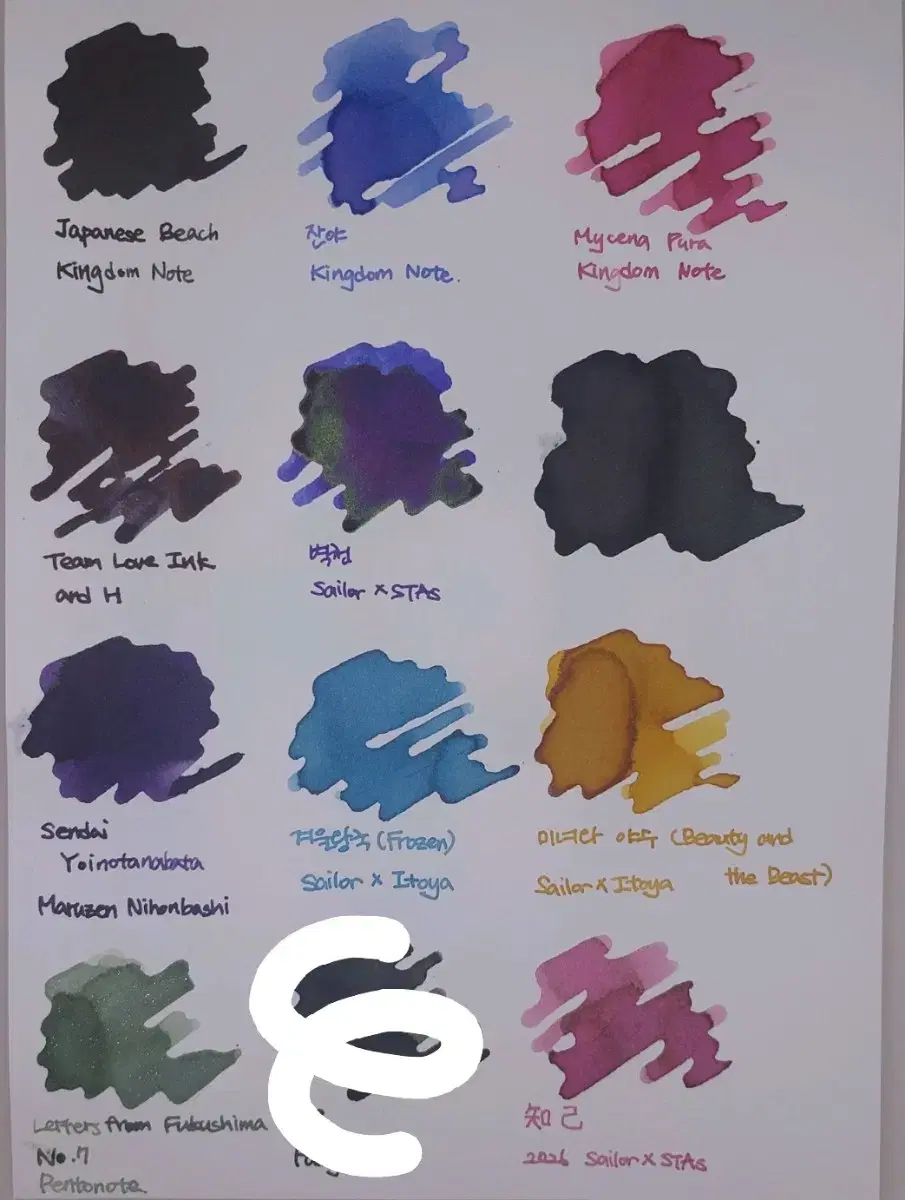 Japanese Beach
Kingdom Note
잔야
Kingdom Note.
Mycena Pura
Kingdom Note
Team Love Ink
and H
벽청
Sailor x STAs
Sendai
Yoinotanabata
Maruzen Nihonbashi
겨울왕국 (Frozen)
Sailor x Itoya
미녀와 야수 (Beauty and
the Beast)
Sailor x Itoya
Letters from Fukushima
No.7
Pentonote.
知己
2026 Sailor x STAs